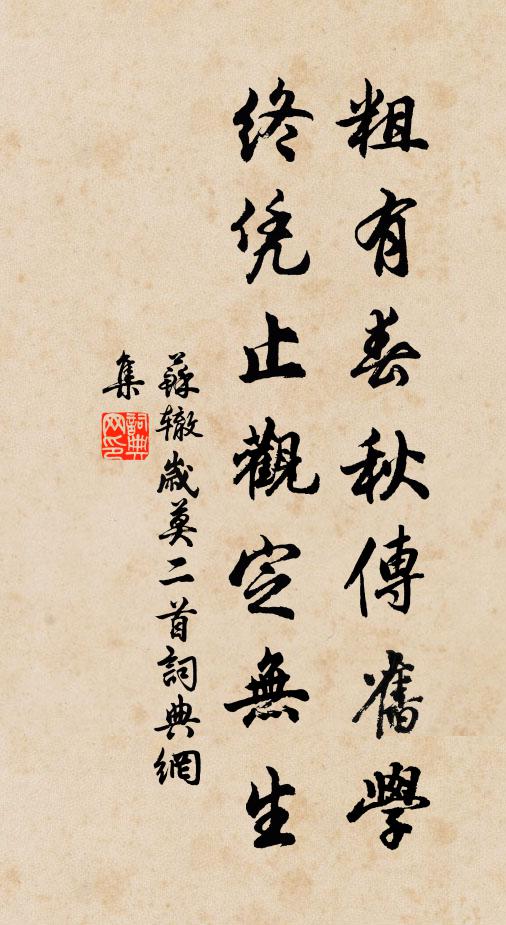 粗有春秋傳舊學
終凭止觀定無生
蘇轍歲莫二首詞典網
集
詞典網印